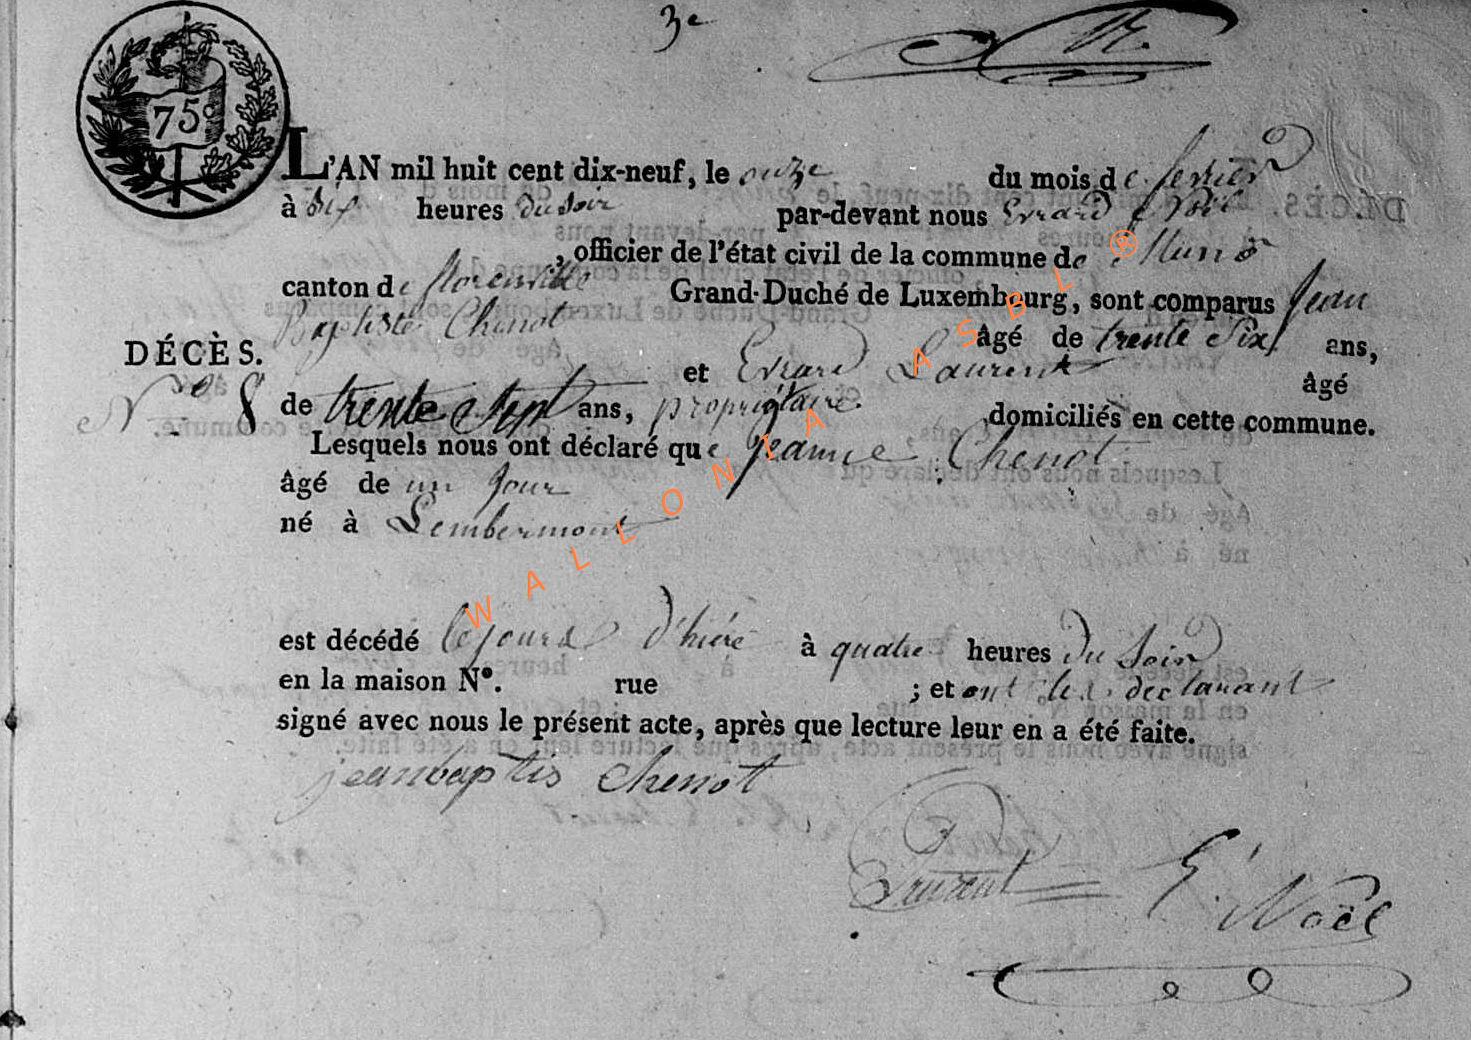 3e
75c
L'AN mil huit cent dix-neuf, le onze du mois de fevrier
à Six heures du Soir par-devant nous Errard Noël
, officier de l'état civil de la commune de Muno
canton de florenville Grand-Duché de Luxembourg, sont comparus Jean
Baptiste Chenot âgé de trente Six ans,
DÉCÈS.
et Errard Laurent âgé
No 8
de trente Sept ans, propriétaire domiciliés en cette commune.
Lesquels nous ont déclaré que Jeanne Chenot
âgé de un Jour
né à Lembermont
est décédé le jour d'hiére à quatre heures du Soir
en la maison N°. rue ; et ont les declarant
signé avec nous le présent acte, après que lecture leur en a été faite.
jeanbaptis chenot
E. Noël
WALLONIA ASBL ®